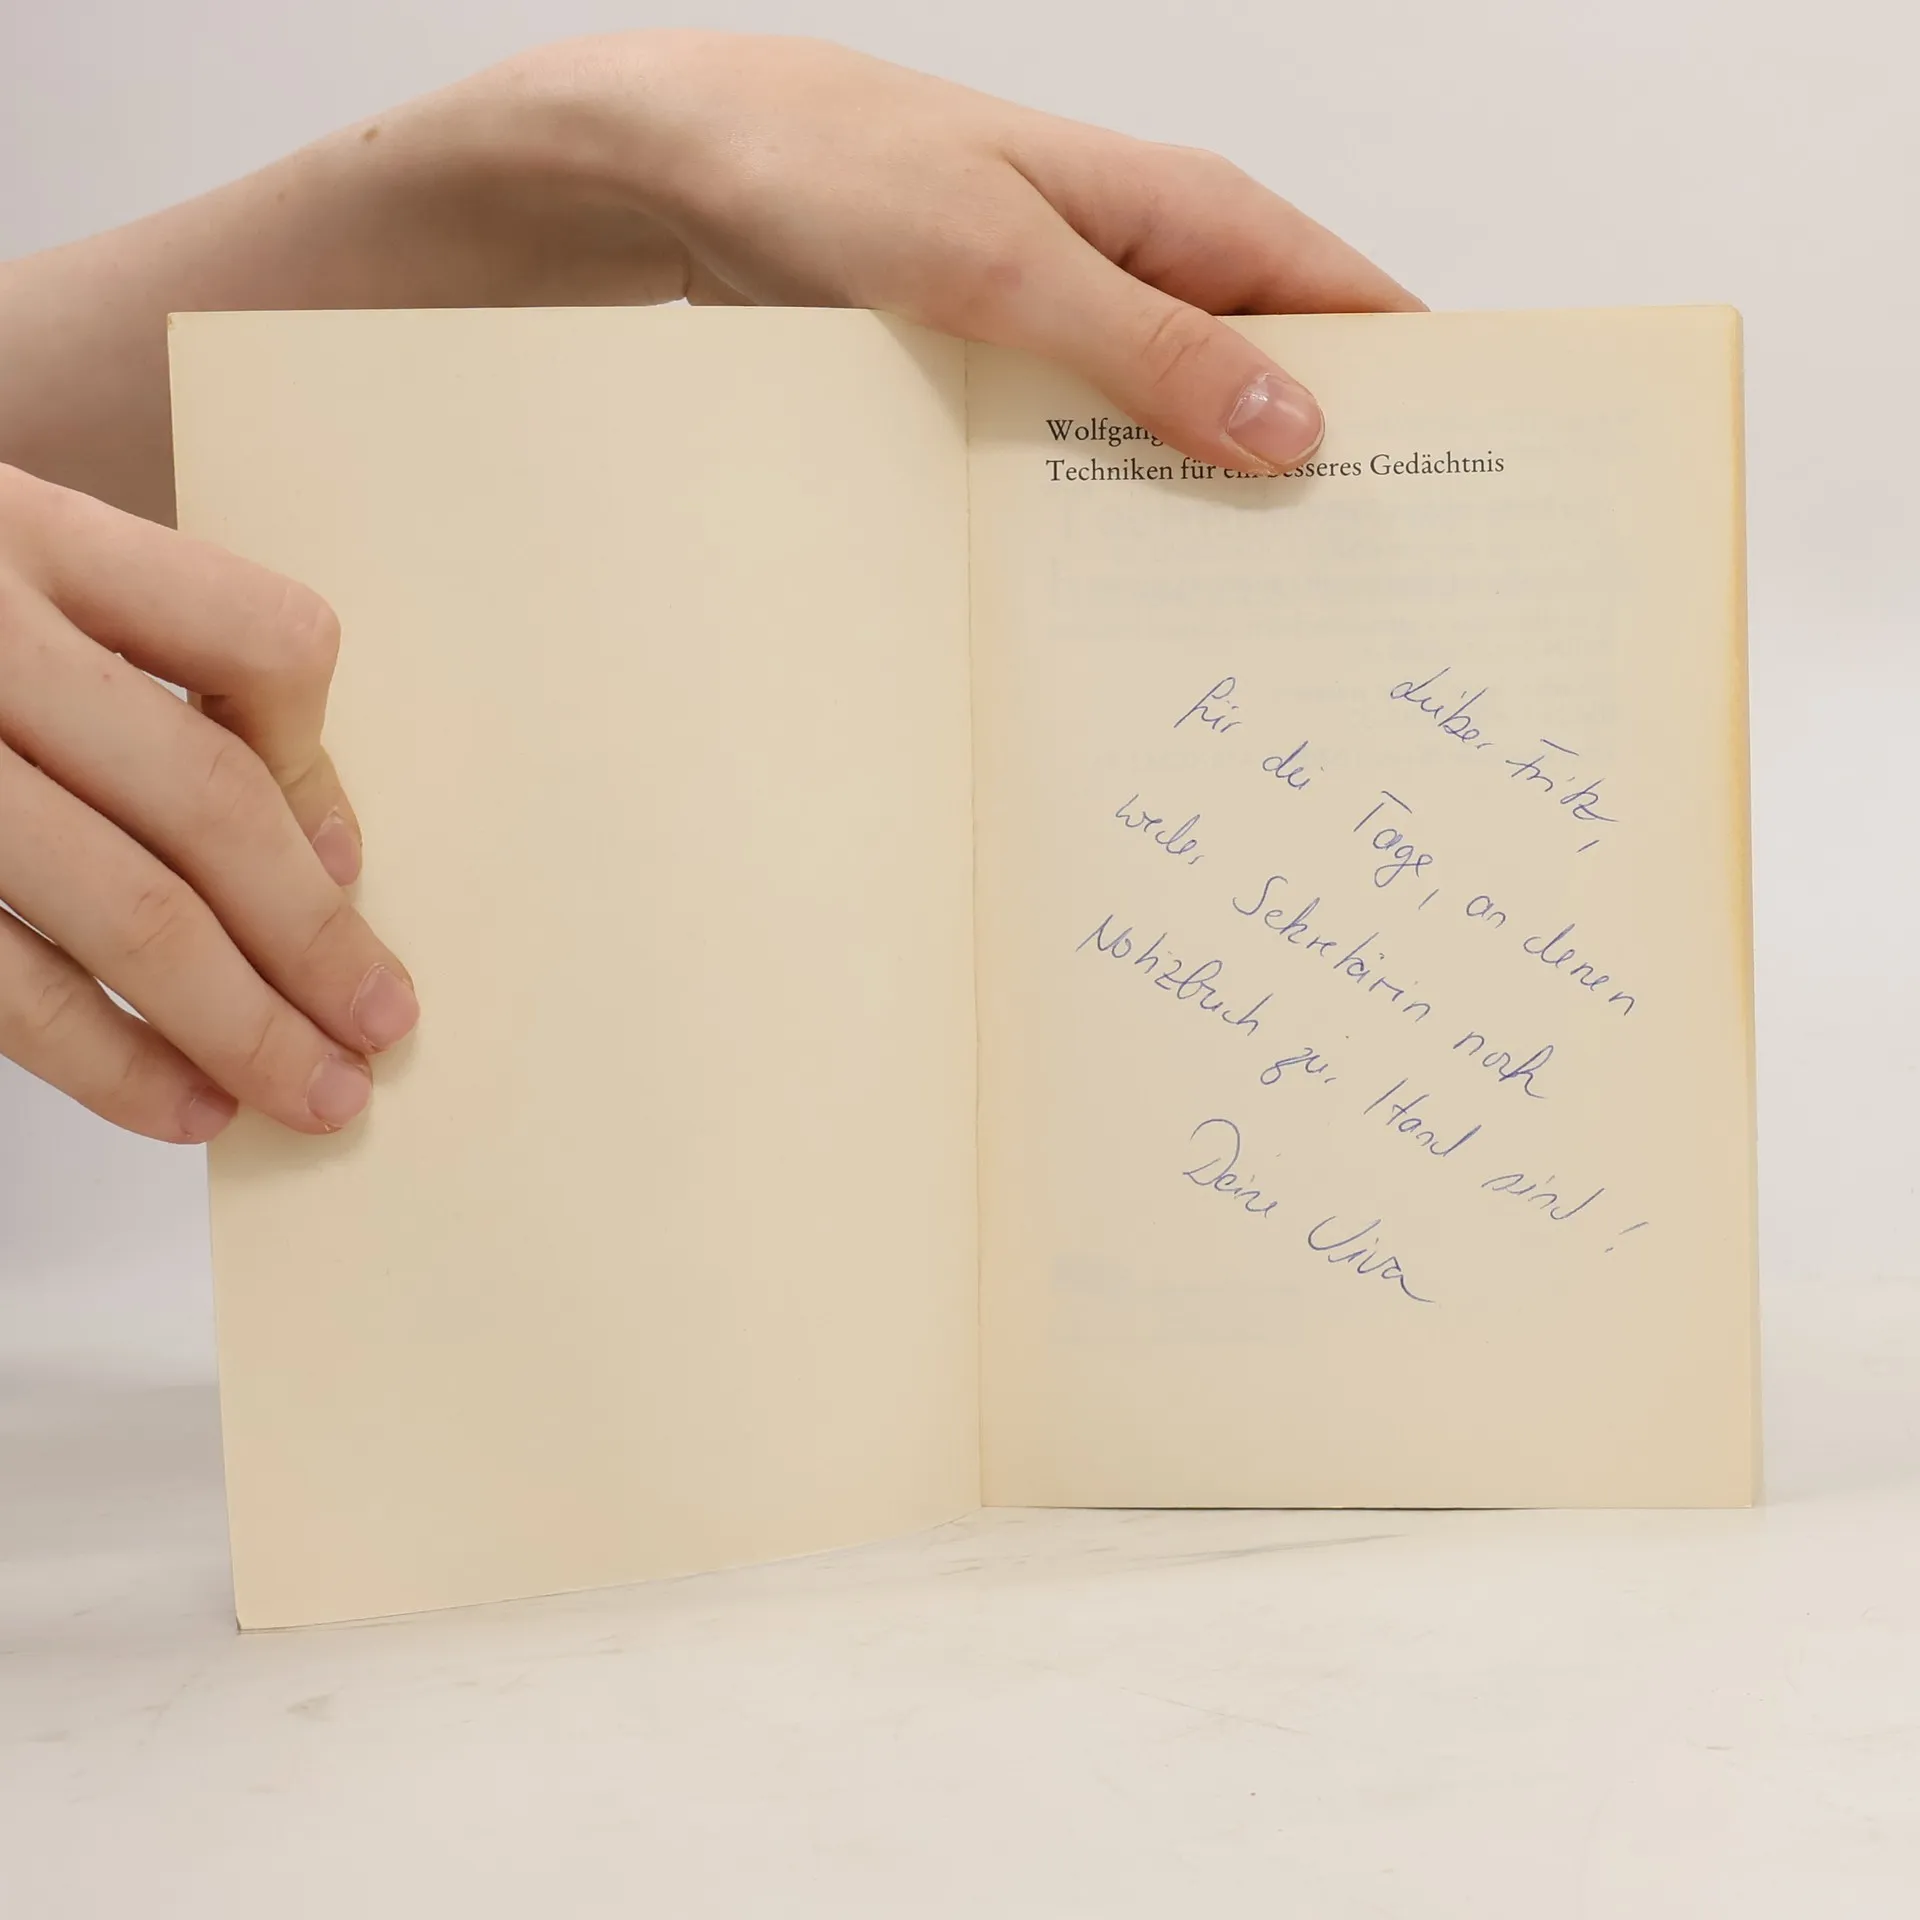 Wolfgang
Techniken für ein besseres Gedächtnis
Lieber Fritz,
für die Tage, an denen
weder Sekretärin noch
Notizbuch zur Hand sind!
Deine Viva